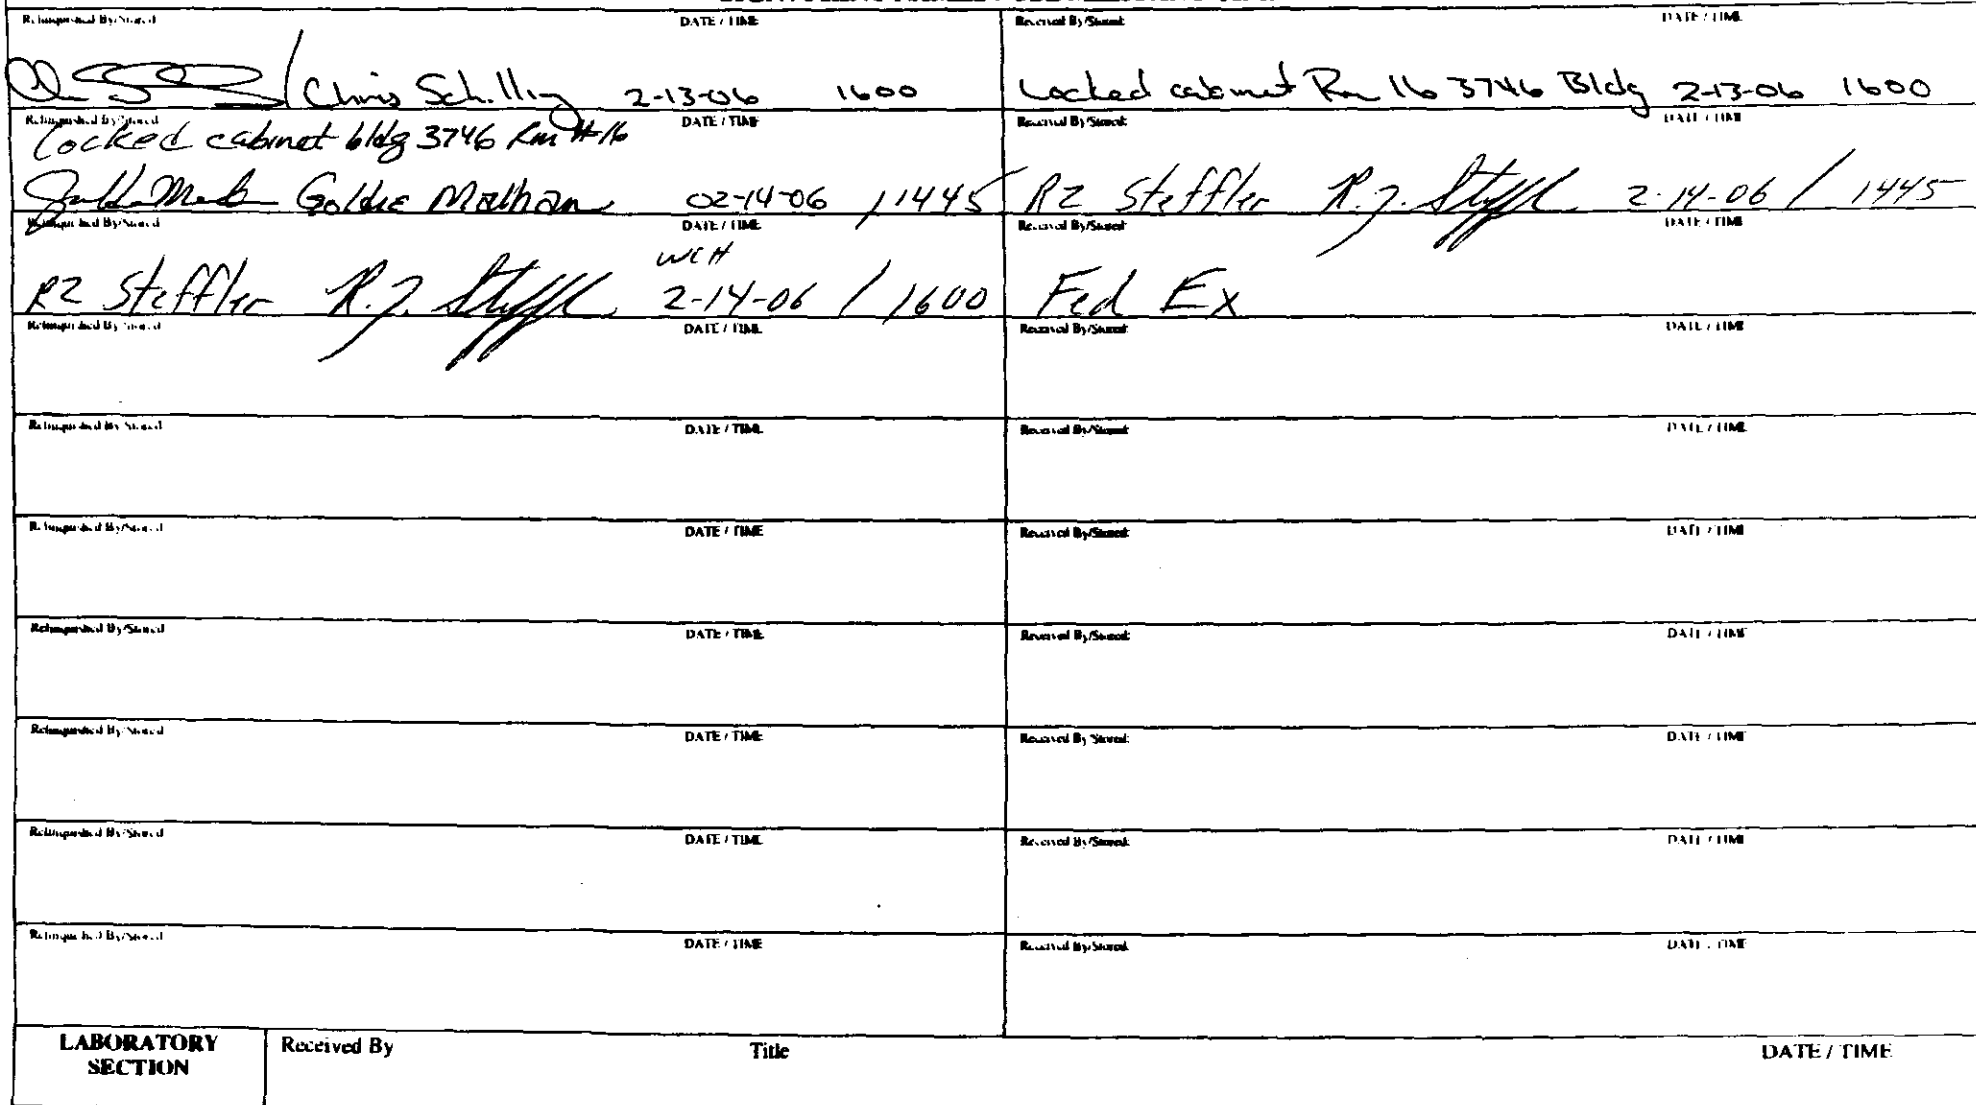 Relinquished By/Stored DATE / TIME Received By/Stored: DATE / TIME
Chris Schilling 2-13-06 1600 Locked cabinet Rm 16 3746 Bldg 2-13-06 1600
Relinquished By/Stored DATE / TIME Received By/Stored: DATE / TIME
Locked cabinet bldg 3746 Rm #16
Goldie 02-14-06 / 1445 RZ Steffler R.Z. Steffler 2-14-06 / 1445
Relinquished By/Stored DATE / TIME Received By/Stored: DATE / TIME
WCH
RZ Steffler R.Z. Steffler 2-14-06 / 1600 Fed Ex
Relinquished By/Stored DATE / TIME Received By/Stored: DATE / TIME
Relinquished By/Stored DATE / TIME Received By/Stored: DATE / TIME
Relinquished By/Stored DATE / TIME Received By/Stored: DATE / TIME
Relinquished By/Stored DATE / TIME Received By/Stored: DATE / TIME
Relinquished By/Stored DATE / TIME Received By/Stored: DATE / TIME
Relinquished By/Stored DATE / TIME Received By/Stored: DATE / TIME
Relinquished By/Stored DATE / TIME Received By/Stored: DATE / TIME
LABORATORY SECTION Received By Title DATE / TIME